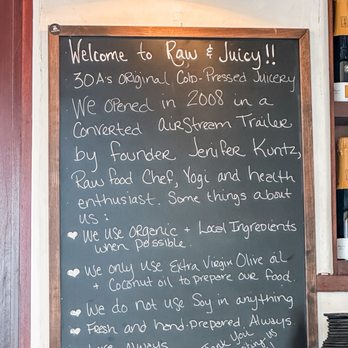 Welcome to Raw & Juicy!!
30A's Original Cold-Pressed Juicery
We opened in 2008 in a
converted Airstream Trailer
by founder Jenifer Kuntz,
Raw food Chef, Yogi and health
enthusiast. Some things about
us:
We use organic + Local Ingredients
when possible.
We only use Extra Virgin Olive oil
+ Coconut oil to prepare our food.
We do not use Soy in anything
Fresh and hand-prepared, Always.
Love, Always
Thank You